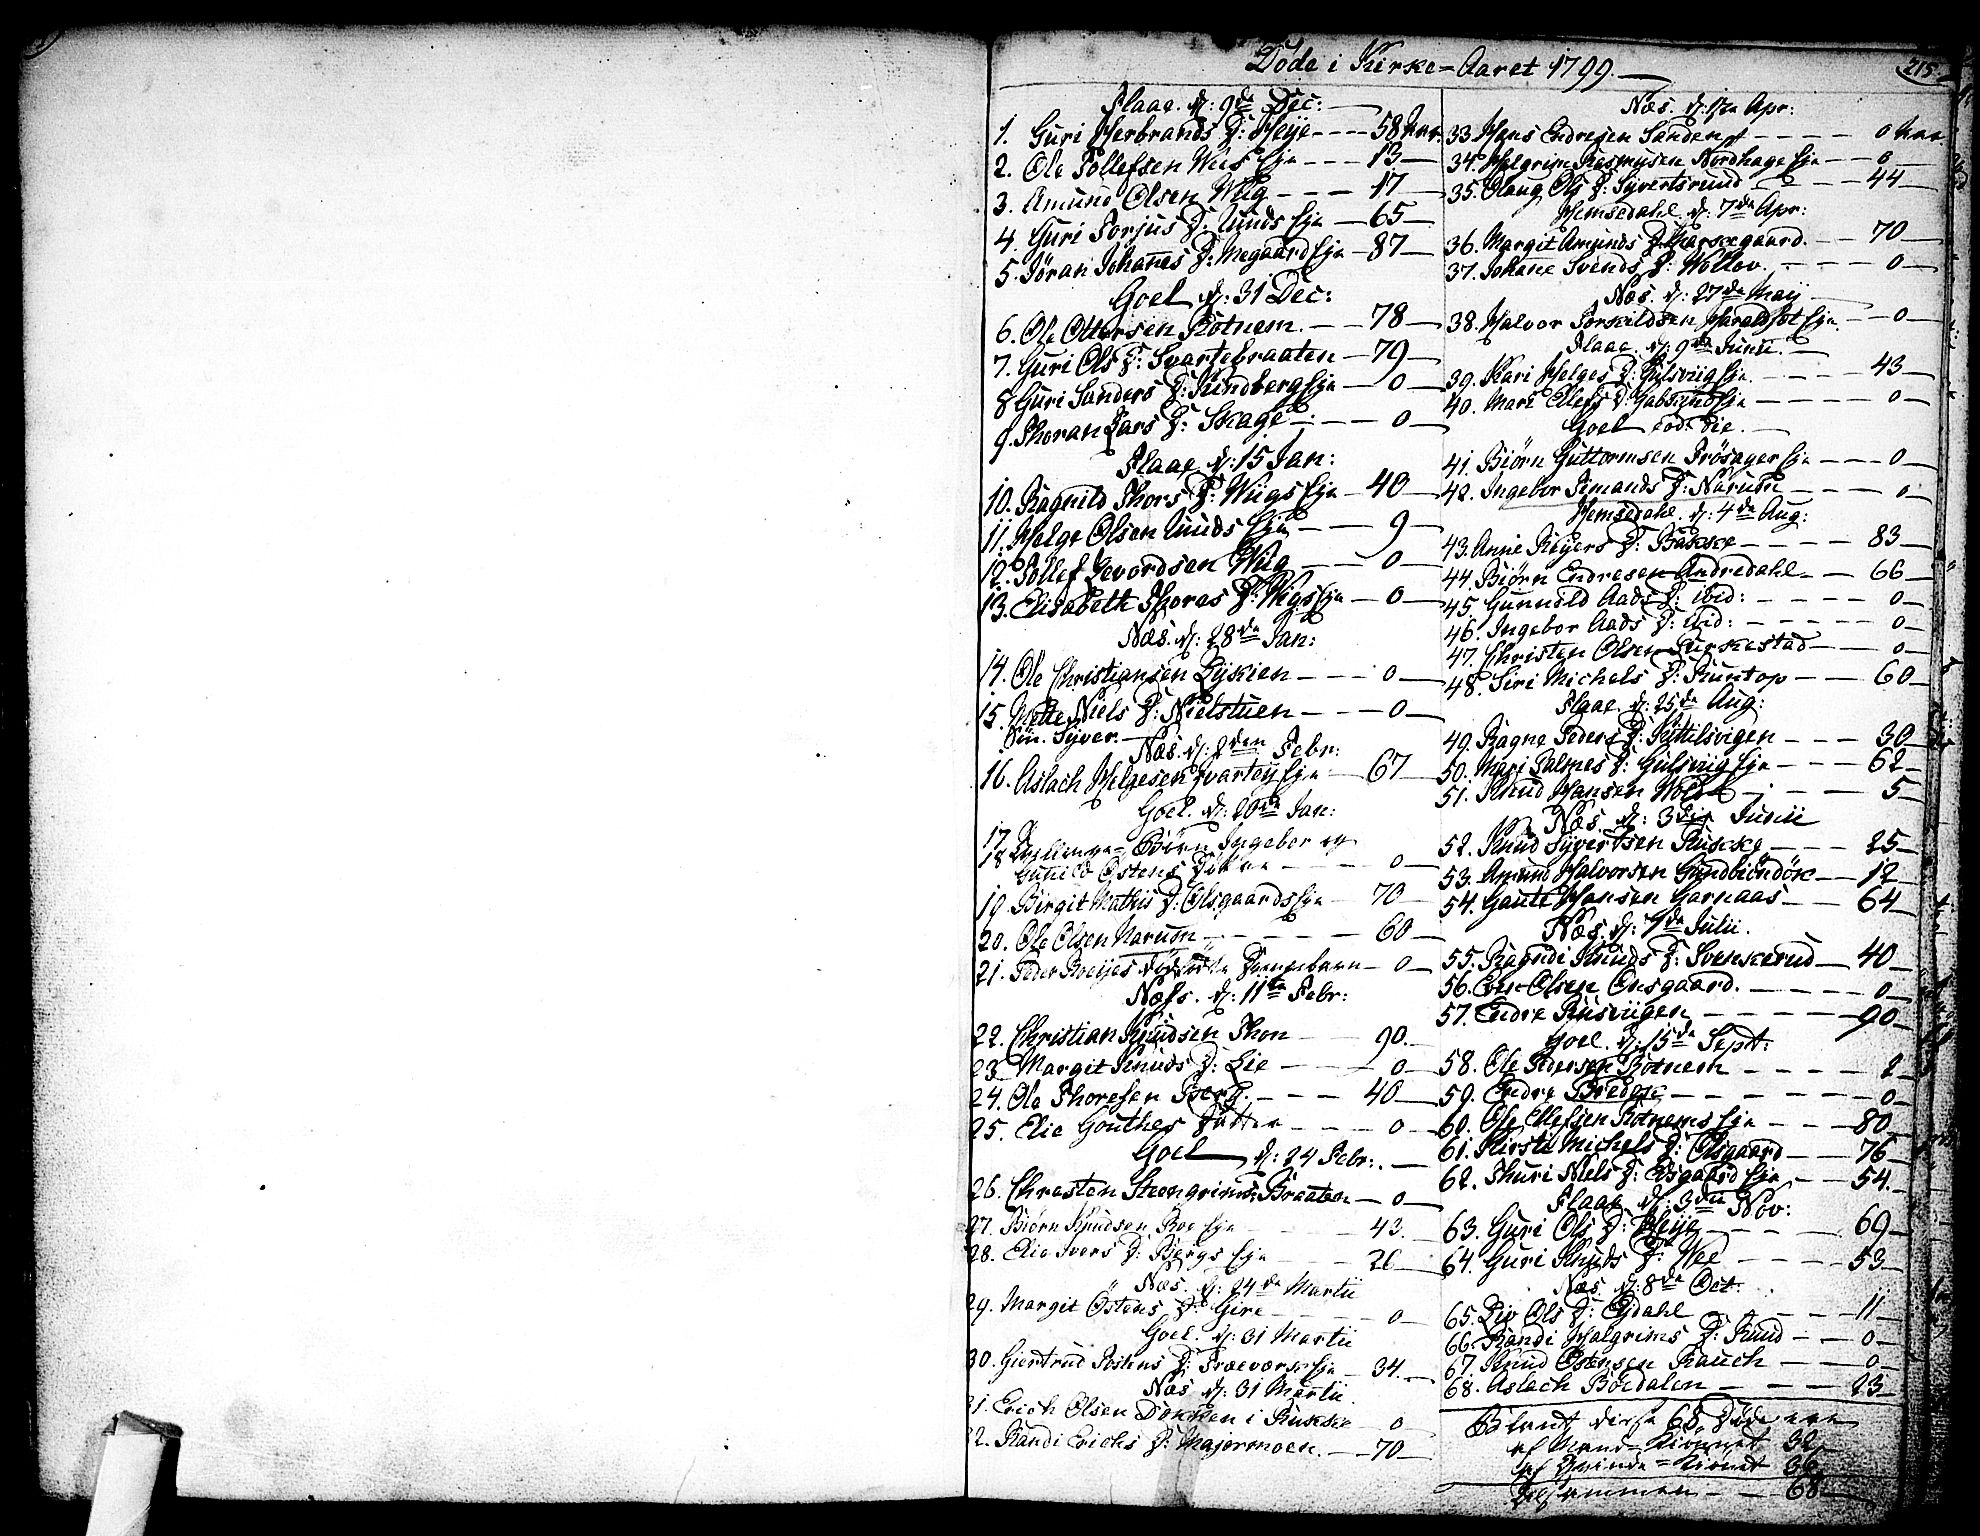 Døde i Kirke-Aaret 1799.
215
Flaae. d: 9de Dec:
1. Guri Herbrands D: Heije 58 Aar
2. Ole Tollefsen Wiis Eje 13
3. Amund Olsen Wiig 17
4. Guri Torjus D: Unds Eje 65
5. Jøran Johanes D: Megaard Eje 87
Goel d: 31 Dec:
6. Ole Ottersen Rotnem 78
7. Guri Ols D: Svartebraaten 79
8 Guri Sanders D: Rindberg Eje 0
9. Thoran Lars D: Skage 0
Flaae d: 15 Jan:
10. Ragnild Thors D: Wiigs Eje 40
11. Helge Olsen Unds Eje 9
12. Tollef Levordsen Wiig 0
13. Elisabeth Thores D: Wigs Eje 0
Næs. d: 28de Jan:
14. Ole Christiansen Lykien 0
15. Mette Niels D: Nielstuen 0
Syver.
Næs. d: 8den Febr:
16. Aslach Helgesen Svartey Eje 67
Goel. d: 20de Jan:
17
18 Tvillinge-Børn Ingebor og
Gunild Østens Døttre 0
19 Birgit Mathis D: Olsgaards Eje 70
20. Ole Olsen Narum 60
21. Peder dødfødte Drengebarn 0
Næfs. d: 11te Febr:
22. Christian Knudsen Thon 90.
23. Margit Knuds D: Lie 0
24. Ole Thoresen Berg. 40
25. Elie Gouthes Datter 0
Goel d: 24 Febr:
26. Christen Steengrims: Braaten 0
27. Biørn Knudsen Roe Eje 43.
28. Elie Ivers D: Bergs Eje 26
Næs. d: 24de Martii
29. Margit Østens D: Gire 0
Goel. d: 31 Martii
30. Giertrud Østens D: Eje 34.
Næs d: 31 Martii
31. Erich Olsen Dokken i Ruskke 0
32. Randi Erichs D: Majormoen. 70
Næs. d: 17de Apr:
33. Hans Endresen Sanden 0 Aar
34. Helgrim Rasmusen Nordhage Eje 0
35. Olaug Ols D: Syvertsruud 44
Hemsedahl. d: 7de Apr:
36. Margit Amunds D: gaard. 70
37. Johane Svends D: Wøllov. 0
Næs. d: 27de Maij
38. Halvor Torkildsen Haraldset Eje. 0
Flaae. d: 9de Junii.
39. Kari Helges D: Gulsviig Eje. 43
40. Mari Ellefs D: Eje 0
Goel eod: die.
41. Biørn Guttormsen Trøsager Eje 0
42. Ingebor Amands D: Narum 0
Hemsedahl. d: 4de Aug:
43. Anne Reyers D: Bakke 83
44. Biørn Endresen Andredahl 66
45. Gunnild Aads D: ibid: 0
46. Ingebor Aads D: ibid: 0
47. Christen Olsen Turkestad 0
48. Siri Michels D: Runtop 60
Flaae. d: 25de Aug:
49. Ragne Peders D: vigen 30
50. Mari Palmes D: Gulsviig Eje 62
51. Knud Hansen Wold 5
Næs. d: 3die Junii
52. Knud Syvertsen Ruskke 25
53. Amund Halvorsen 12
54. Gaute Hansen Garnaas 64
Næs. d: 7de Julii.
55. Ragndi Knuds D: Svenkerud 40
56. Olsen Onsgaard. 0
57. Endre Rusviigen 90
Goel. d: 15de Sept:
58. Ole Pedersen Rotnem 2
59. Endre Bredese 0
60. Ole Ellefsen Rotnems Eje 80
61. Kirsti Michels D: Olsgaard 76
62. Thuri Niels D: Eje 54.
Flaae. d: 3die Nov:
63. Guri Ols D: Heije 69
64. Guri Knuds D: Wee 53
Næs. d: 8de Oct:
65. Liv Ols D: Ejdahl 11
66. Randi Halgrims D: Ruud 0
67. Knud Østensen Rauch 0
68. Aslach Bordalen 23
Blandt disse 68 Døde ere
af Mand-Kiønnet 32
af Qvinde-Kiønnet 36
Tilsammen 68